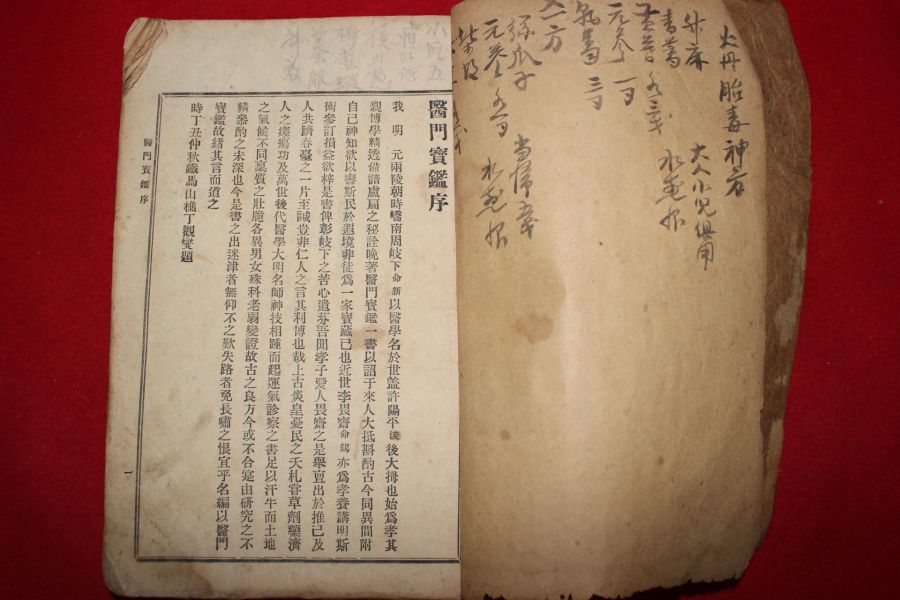 火丹胎毒神方
大人小兒俱用
升麻
青蒿
元參
一方
絲瓜子
元參
柴胡
醫門寶鑑序
我 明 元兩陵朝時嶠南周岐下命新以醫學名於世盖許陽平浚後大拇也始爲孝其
親博學精透借諳盧扁之秘詮晩著醫門寶鑑一書以詔于來人大抵斟酌古今同異間附
自己神知欲以壽斯民於遐境非徒爲一家寶藏已也近世李畏齋命鍔亦爲孝養講明斯
術參訂損益欲梓是書俾彰岐下之苦心遺芬吾聞孝子愛人畏齋之是擧亶出於推己及
人共躋春臺之一片至誠豈非仁人之言其利博也哉上古炎皇憂民之夭札甞草劑藥濟
人之瘥瘍功及萬世後代醫學大明名師神技相踵而起運氣診察之書足以汗牛而土地
之氣候不同稟質之壯脆各異男女殊科老弱變證故古之良方今或不合寔由研究之不
精叅酌之未深也今是書之出迷津者無仰不之歎失路者免長嘯之恨宜乎名編以醫門
寶鑑故緖其言而道之
時丁丑仲秋鐵馬山樵丁觀燮題
醫門寶鑑序
一